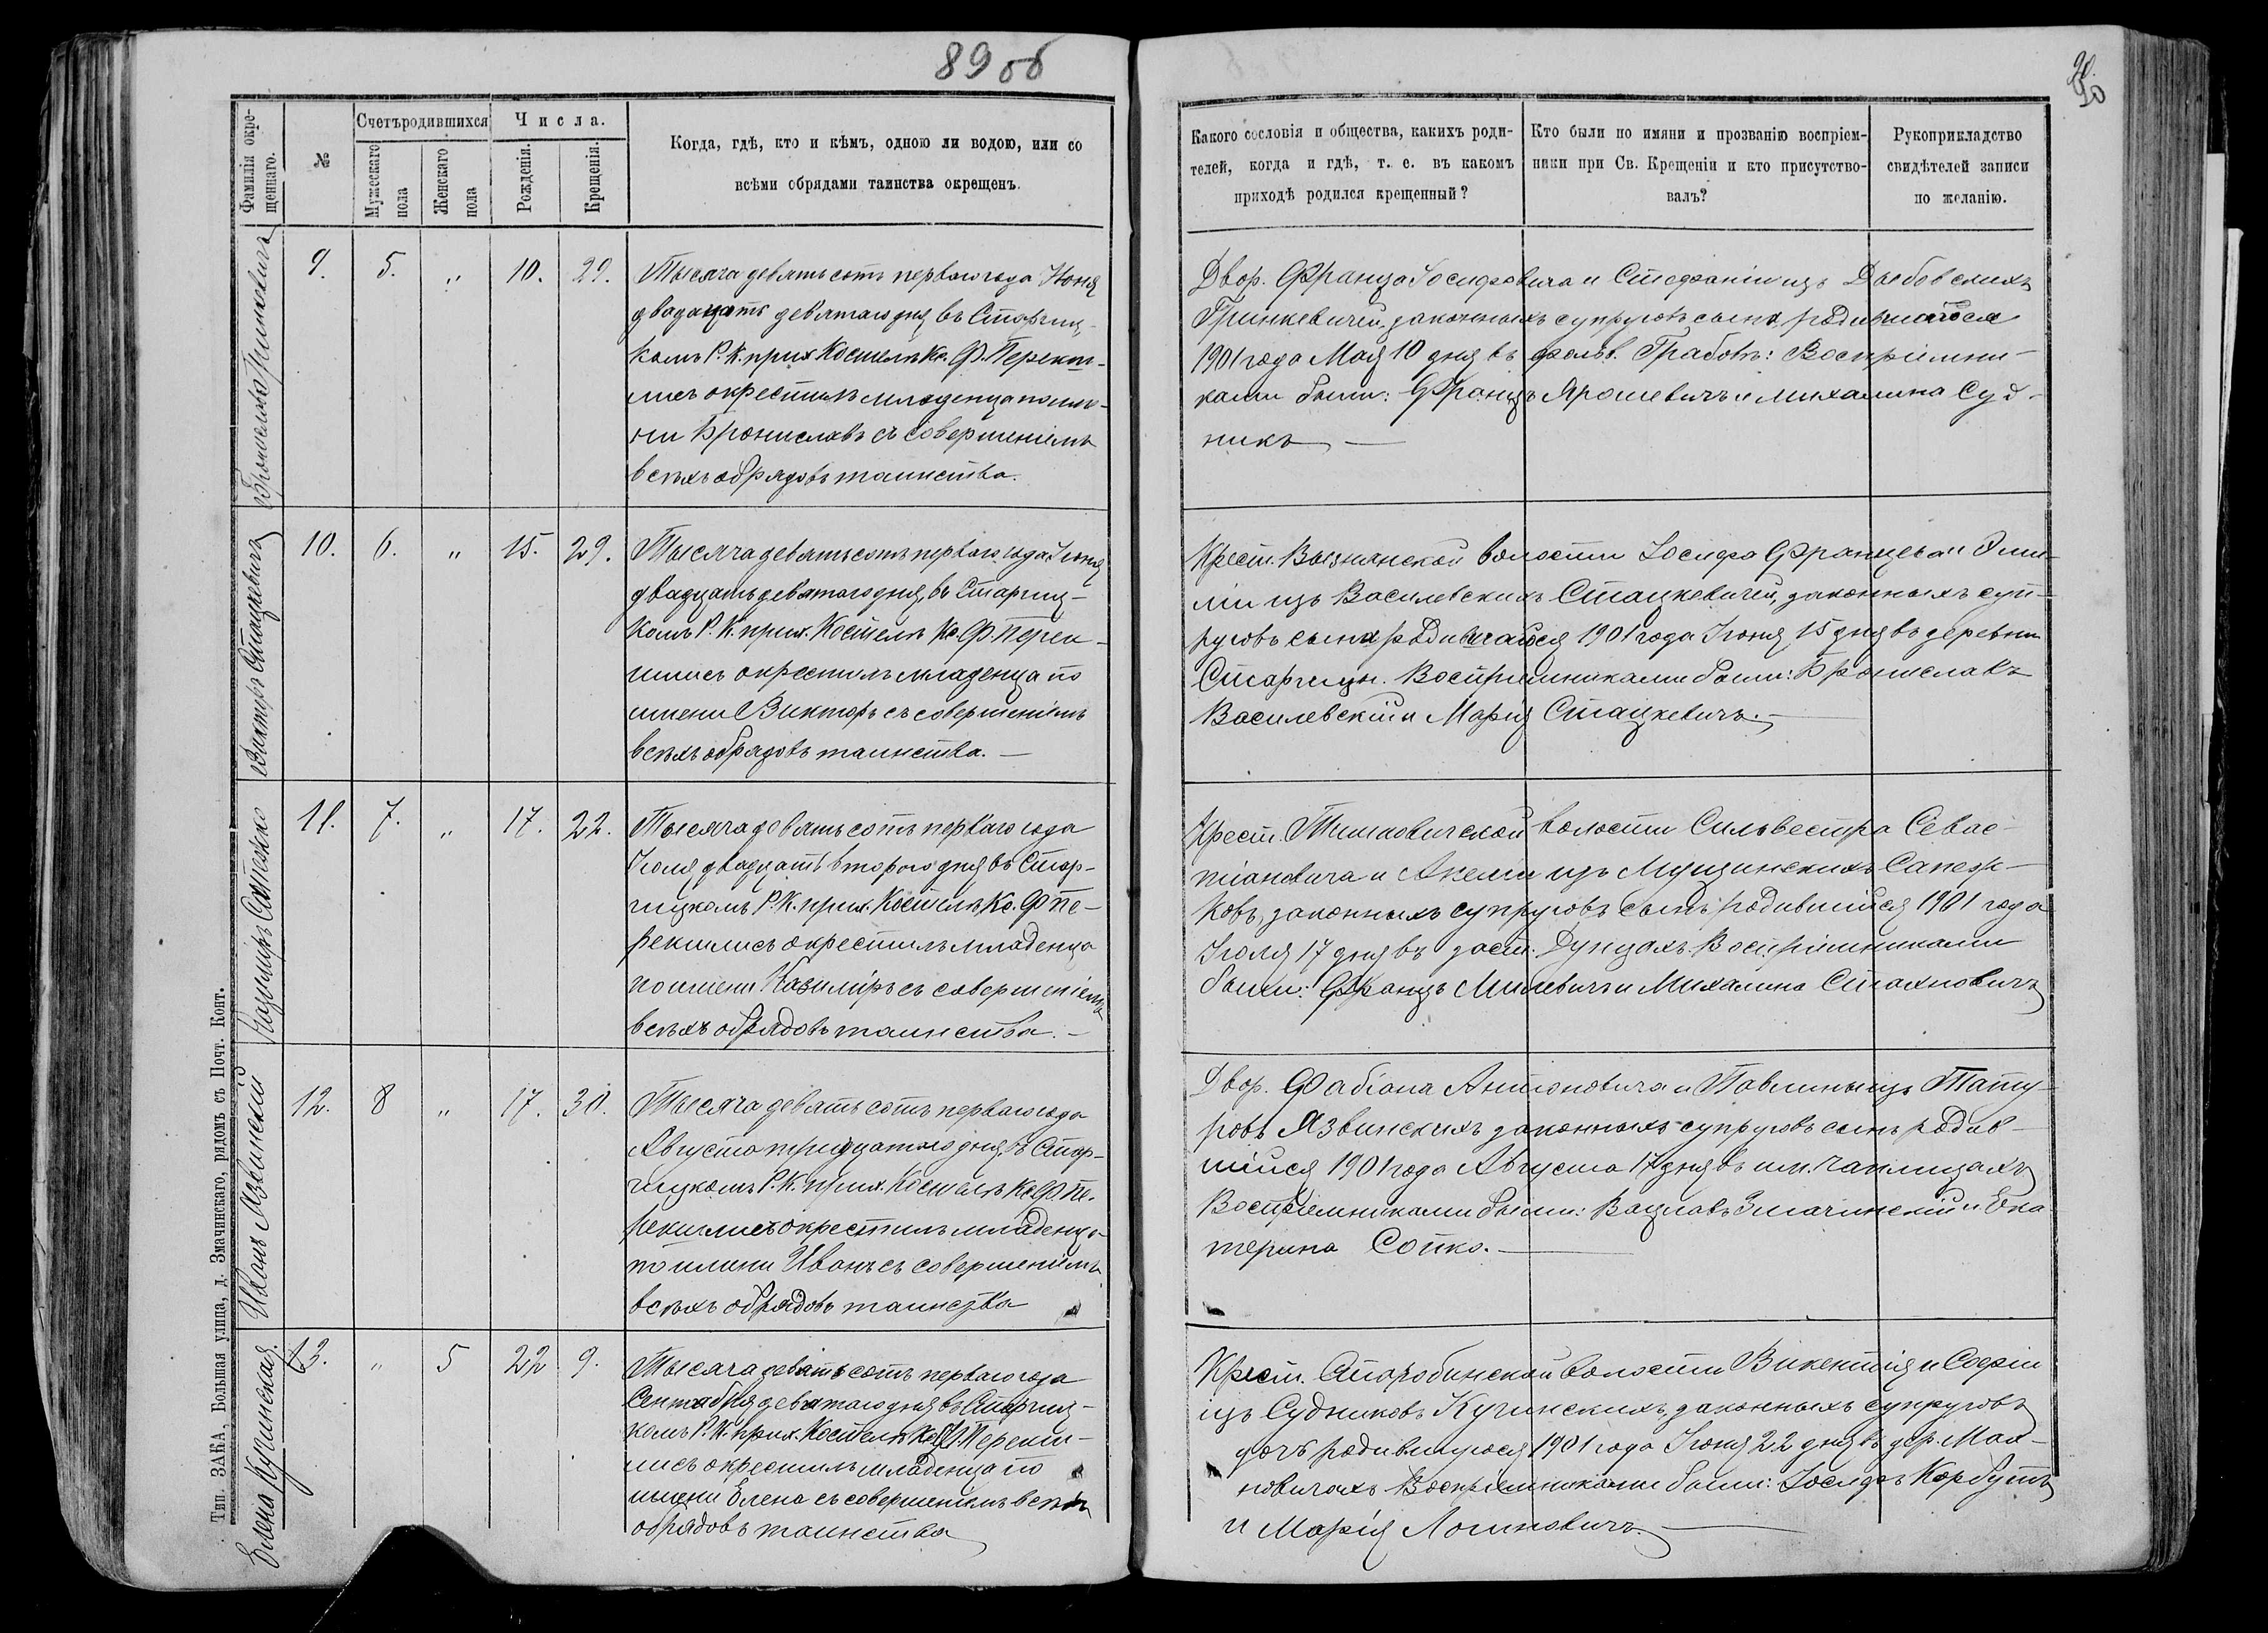 89 об
90
Фамилія окре-
щеннаго.
№
Счетъ родившихся
Мужескаго
пола
Женскаго
пола
Числа.
Рожденія.
Крещенія.
Когда, гдѣ, кто и кѣмъ, одною ли водою, или со
всѣми обрядами таинства окрещенъ.
Какого сословія и общества, какихъ роди-
телей, когда и гдѣ, т. е. въ какомъ
приходѣ родился крещенный?
Кто были по имяни и прозванію воспріем-
ники при Св. Крещеніи и кто присутство-
валъ?
Рукоприкладство
свидѣтелей записи
по желанію.
Брониславъ Гринкевичъ
9. 5. " 10. 29.
Тысяча девятьсотъ перваго года Іюня
двадцать девятаго дня въ Старчиц-
комъ Р. К. прих. Костелѣ Кс. Ф. Перекши-
лисъ окрестилъ младенца по име-
ни Брониславъ съ совершеніемъ
всѣхъ обрядовъ таинства.
Двор. Франца Іосифовича и Стефаніи изъ Дыбовскихъ
Гринкевичей законныхъ супруговъ сынъ, родившійся
1901 года Мая 10 дня въ фольв. Грабовѣ: Воспріемни-
ками были: Францъ Ярошевичъ и Михалина Суд-
никъ
Викторъ Стацкевичъ
10. 6. " 15. 29.
Тысяча девятьсотъ перваго года Іюня
двадцать девятаго дня, въ Старчиц-
комъ Р. К. прих. Костелѣ Кс. Ф. Перек-
шилисъ окрестилъ младенца по
имени Викторъ съ совершеніемъ
всѣхъ обрядовъ таинства.
Крест. Вызнянской волости Іосифа Францева и Эми-
ліи изъ Василевскихъ Стацкевичей, законныхъ суп-
руговъ сынъ родившійся 1901 года Іюня 15 дня въ деревни
Старчицы. Воспріемниками были: Брониславъ
Василевскій и Марія Стацкевичъ.
Казиміръ Сапежко
11. 7. " 17. 22.
Тысяча девятьсотъ перваго года
Іюля двадцать втораго дня въ Стар-
чицкомъ Р. К. прих. Костелѣ Кс. Ф. Пе-
рекшилисъ окрестилъ младенца
по имени Казиміръ съ совершеніемъ
всѣхъ обрядовъ таинства.
Крест. Тимковичской волости Сильвестра Севас-
тіановича и Анеліи изъ Мущинскихъ Сапеж-
ковъ, законныхъ супруговъ сынъ родившійся 1901 года
Іюля 17 дня въ заст. Дунцахъ. Воспріемниками
были: Францъ Милевичъ и Михалина Стахновичъ
Иванъ Язвинскій
12. 8 " 17. 30.
Тысяча девятьсотъ перваго года
Августа тридцатаго дня, въ Стар-
чицкомъ Р. К. прих. Костелѣ Кс. Ф. Пе-
рекшилисъ окрестилъ младенца
по имени Иванъ съ совершеніемъ
всѣхъ обрядовъ таинства
Двор. Фабіана Антоновича и Павлины изъ Тату-
ровъ Язвинскихъ законныхъ супруговъ сынъ родив-
шійся 1901 года Августа 17 дня въ им. Чаплицахъ
Воспріемниками были: Вацлавъ Змачинскій и Ека
терина Сопко.
Елена Кучинская.
13. " 5 22 9.
Тысяча девятьсотъ перваго года
Сентября девятаго дня въ Старчиц-
комъ Р. К. прих. Костелѣ Кс. Ф. Перекши-
лисъ окрестилъ младенца по
имени Елена съ совершеніемъ всѣхъ
обрядовъ таинства
Крест. Старобинской волости Викентія и Софіи
изъ Судниковъ Кучинскихъ, законныхъ супруговъ
дочь родившуюся 1901 года Іюня 22 дня въ дер. Мах-
новичахъ Воспріемниками были: Іосифъ Корбутъ
и Марія Логиновичъ.
Тип. ЗАКА, Большая улица, д. Змачинскаго, рядомъ съ Почт. Конт.